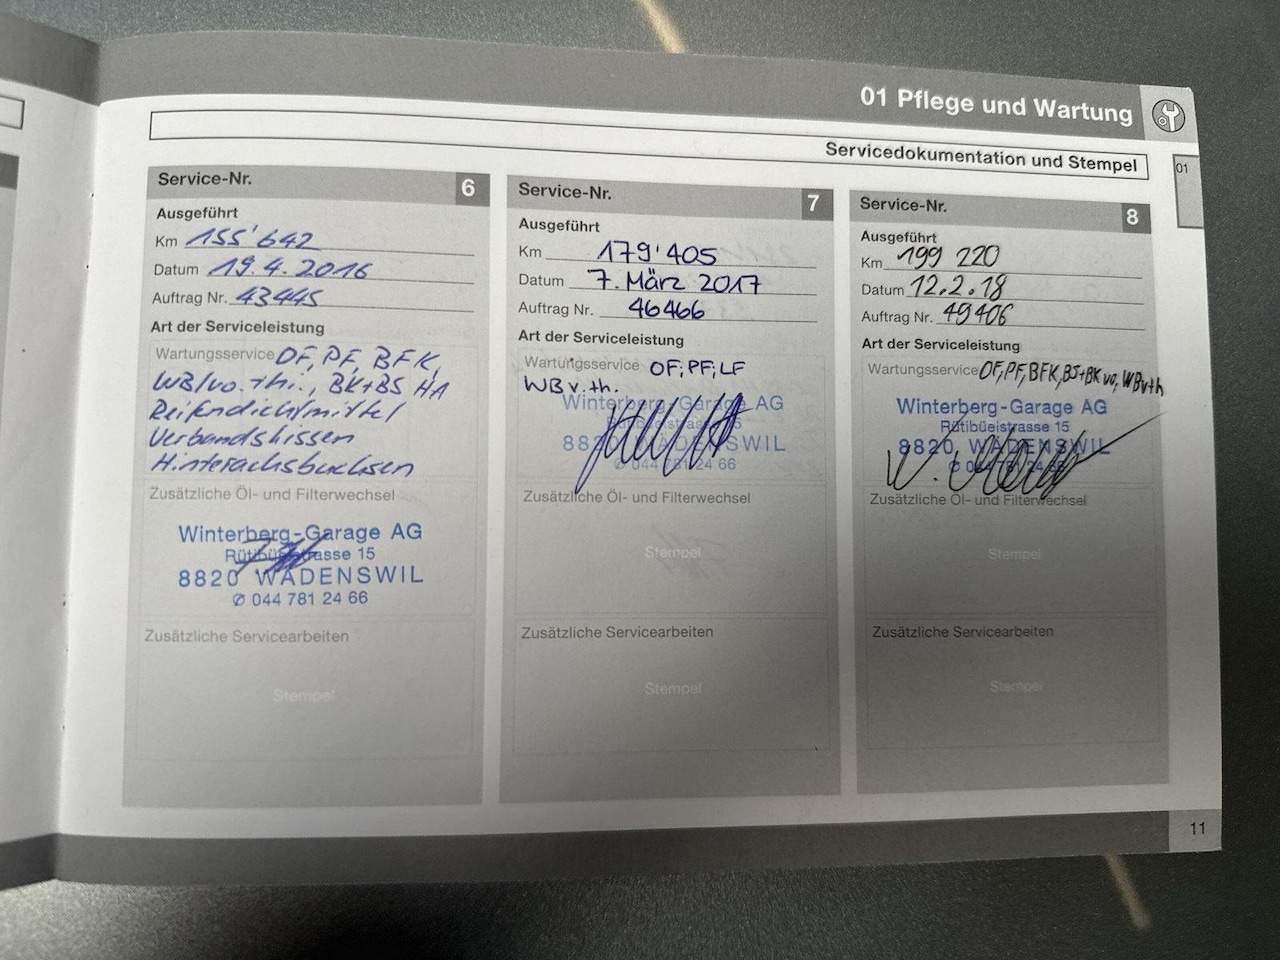 01 Pflege und Wartung
Servicedokumentation und Stempel
01
Service-Nr. 6
Ausgeführt
Km 155'642
Datum 19.4.2016
Auftrag Nr. 43445
Art der Serviceleistung
Wartungsservice OF, PF, BFK,
WB/vo.+hi., BK+BS HA
Reifendichtmittel
Verbandskissen
Hinterachsbuchsen
Zusätzliche Öl- und Filterwechsel
Winterberg-Garage AG
Rütibüelstrasse 15
8820 WÄDENSWIL
✆ 044 781 24 66
Zusätzliche Servicearbeiten
Stempel
Service-Nr. 7
Ausgeführt
Km 179'405
Datum 7. März 2017
Auftrag Nr. 46466
Art der Serviceleistung
Wartungsservice OF; PF; LF
WB v. th.
Winterberg-Garage AG
Rütibüelstrasse 15
8820 WÄDENSWIL
✆ 044 781 24 66
Zusätzliche Öl- und Filterwechsel
Stempel
Zusätzliche Servicearbeiten
Stempel
Service-Nr. 8
Ausgeführt
Km 199 220
Datum 12.2.18
Auftrag Nr. 49406
Art der Serviceleistung
Wartungsservice OF, PF, BFK, BS+BK vo, WBv+h
Winterberg-Garage AG
Rütibüelstrasse 15
8820 WÄDENSWIL
✆ 044 781 24 66
Zusätzliche Öl- und Filterwechsel
Stempel
Zusätzliche Servicearbeiten
Stempel
11